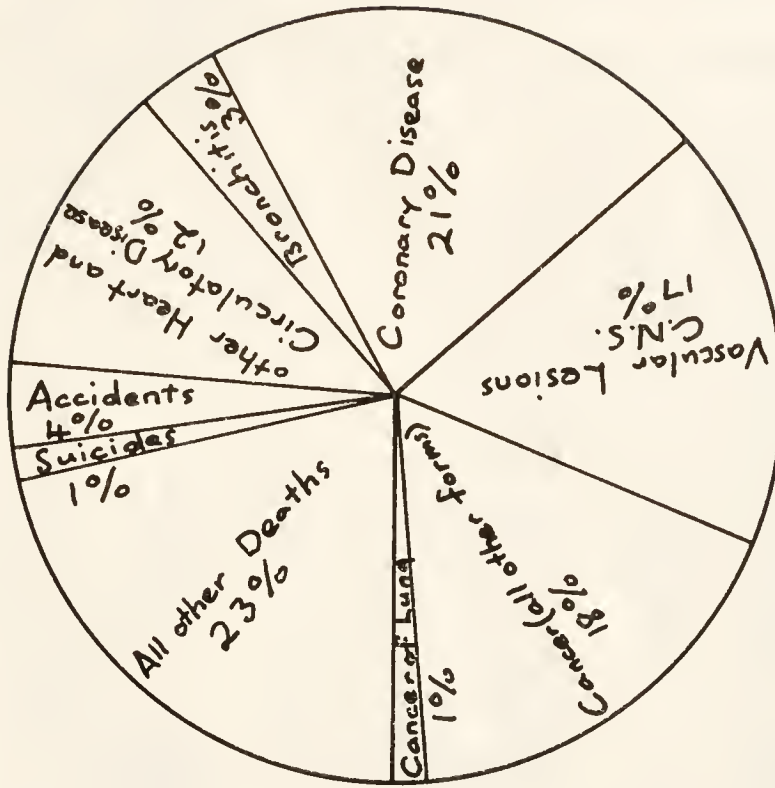 Coronary Disease
21%
Vascular Lesions
C.N.S.
17%
Cancer (all other forms)
18%
Cancer of Lung
1%
All other Deaths
23%
Suicides
1%
Accidents
4%
other Heart and
Circulatory Disease
12%
Bronchitis
3%